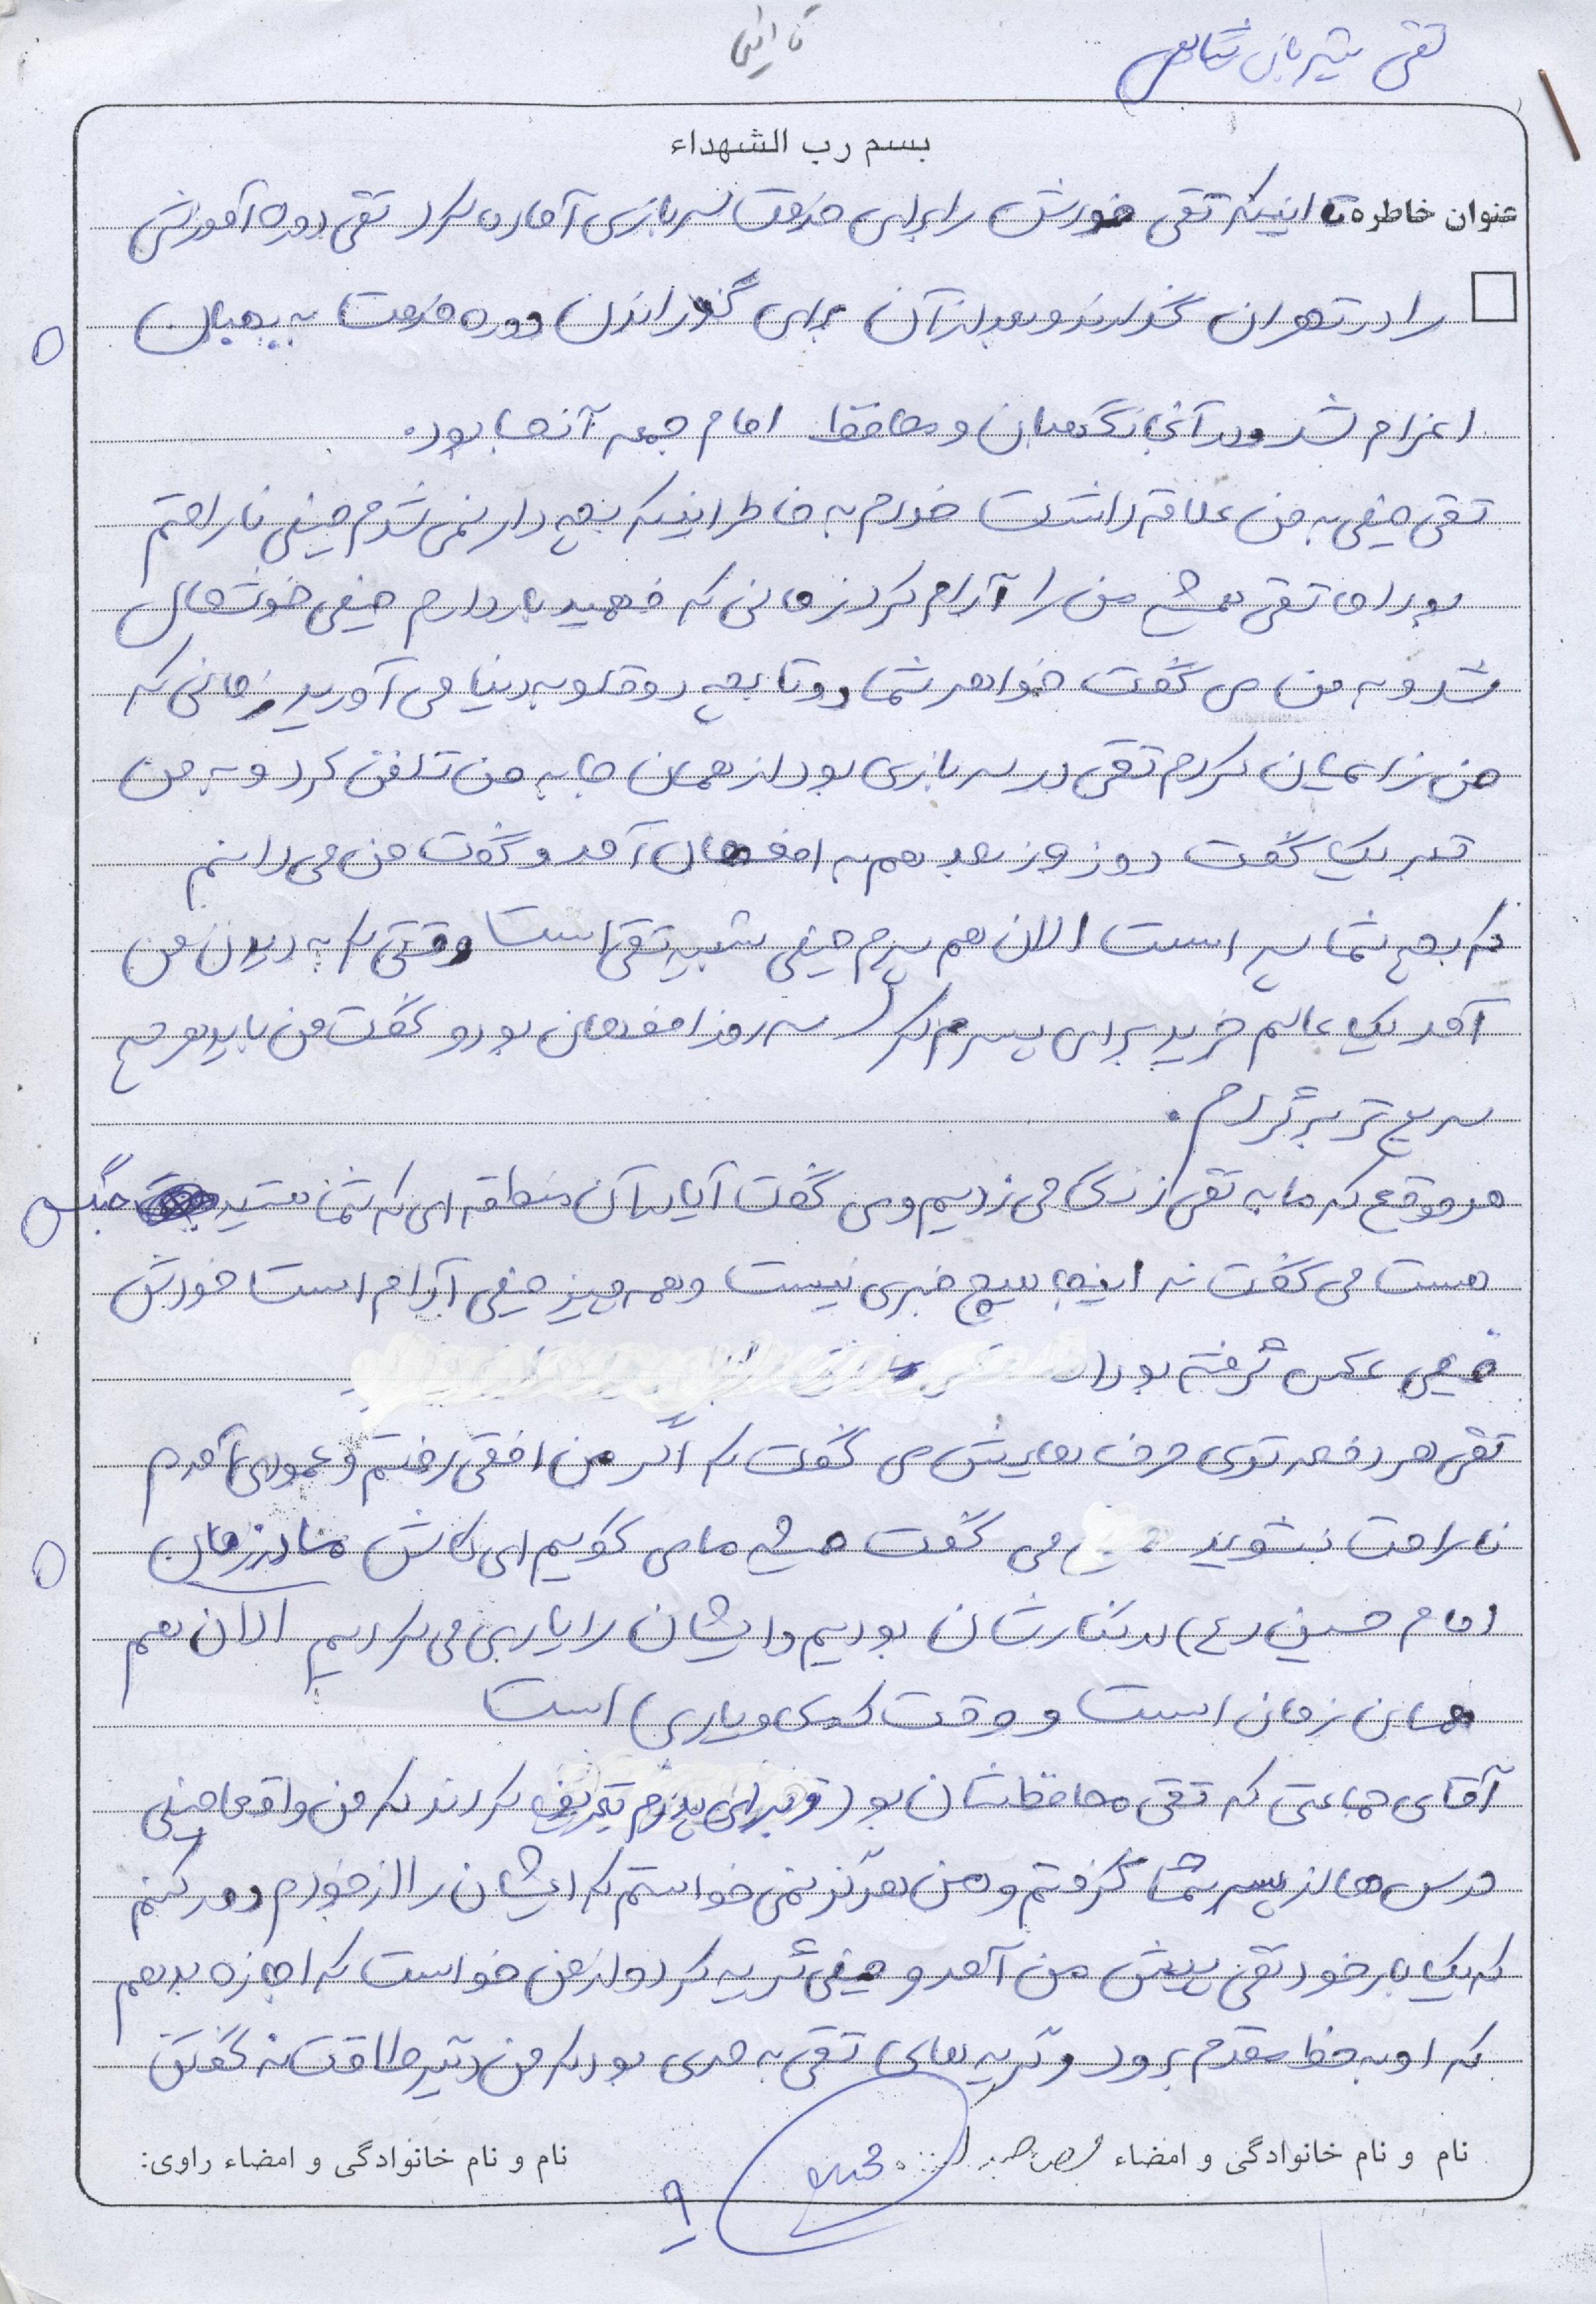 تقی
تا اینکه
بسم رب الشهداء
عنوان خاطره: تا اینکه تقی خودش را برای خدمت سربازی آماده کرد تقی دوره آموزش
را در تهران گذراند و بعد از آن برای گذراندن دوره خدمت به بهبهان
اعزام شد و در آنجا نگهبان و محافظ امام جمعه آنجا بود.
تقی خیلی به من علاقه داشت خودم به خاطر اینکه بچه دار نمی شدم خیلی ناراحتم
بود اما تقی همش من را آرام کرد زمانی که فهمید باردارم خیلی خوشحال
شد و به من می گفت خواهر شما دوتا بچه دوقلو به دنیا می آورید زمانی که
من زایمان کردم تقی در سربازی بود از همان جا به من تلفن کرد و به من
تبریک گفت دو روز بعد هم به اصفهان آمد و گفت من می دانم
که بچه شما پسر است الان هم پسرم خیلی شبیه تقی است وقتی که به دیدن من
آمد یک عالم خرید برای پسرم کرد سه روز اصفهان بود و گفت من باید هرچه
سریع تر برگردم.
هر موقع که ما به تقی زنگ می زدیم و می گفت آیا در آن منطقه ای که شما هستید جنگ
هست می گفت نه اینجا هیچ خبری نیست و همه چیز خیلی آرام است خودش
خیلی عکس گرفته بود
تقی هر دفعه توی حرف هایش می گفت که اگر من افقی رفتم و عمودی آمدم
ناراحت نشوید می گفت همیشه ما می گوییم ای کاش ما در زمان
امام حسین (ع) در کنارشان بودیم و ایشان را یاری می کردیم الان هم
همان زمان است و وقت کمک و یاری است
آقای جماعتی که تقی محافظشان بود و برای پدرم تعریف کردند که من واقعا خیلی
درس ها از پسر شما گرفتم و من هرگز نمی خواستم که ایشان را از خودم دور کنم
که یک بار خود تقی پیش من آمد و خیلی گریه کرد و از من خواست که اجازه بدهم
که او به خط مقدم برود و گریه های تقی به حدی بود که من دیگر طاقت نه گفتن
نام و نام خانوادگی و امضاء
نام و نام خانوادگی و امضاء راوی:
۹